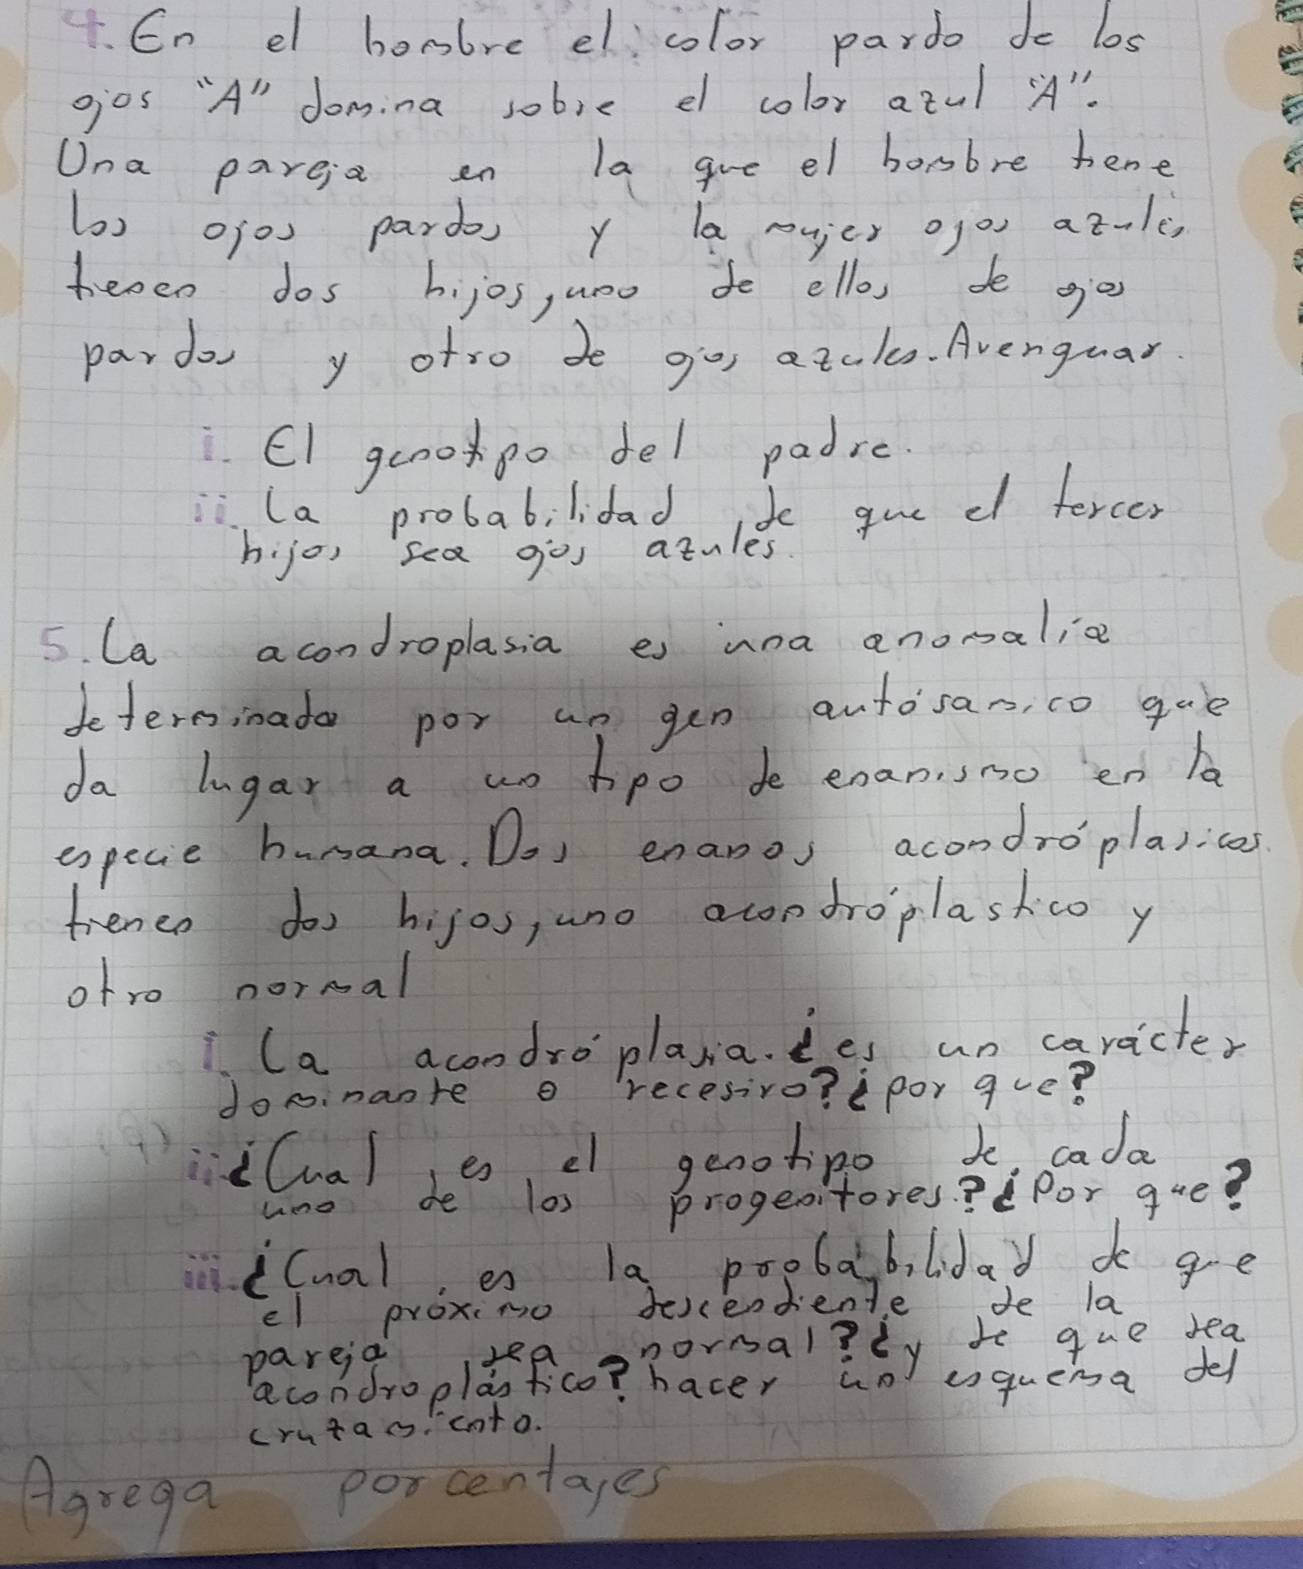 4. En el hombre el color pardo de los
ojos "A" domina sobre el color azul "A".
Una pareja en la que el hombre tiene
los ojos pardos y la mujer ojos azules,
tienen dos hijos, uno de ellos de ojos
pardos y otro de ojos azules. Avenguar.
i. El genotipo del padre.
ii. La probabilidad de que el tercer
hijos sea ojos azules.
5. La acondroplasia es una anomalía
determinada por un gen autósamico que
da lugar a un tipo de enanismo en la
especie humana. Dos enanos acondróplasicos
tienen dos hijos, uno acondróplastico y
otro normal
i. La acondróplasia. ¿es un carácter
dominante o recesivo? ¿por que?
ii. ¿Cual es el genotipo de cada
uno de los progenitores? ¿Por que?
iii. ¿Cual es la probabilidad de que
el próximo descendiente de la
pareja sea normal? ¿y de que sea
acondroplástico? hacer un esquema del
cruzamiento.
Agrega porcentajes